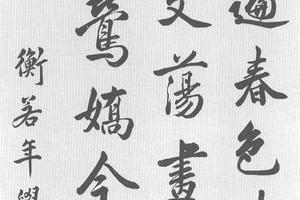 遍春色
蕩畫
鶯嬌今
衡若年